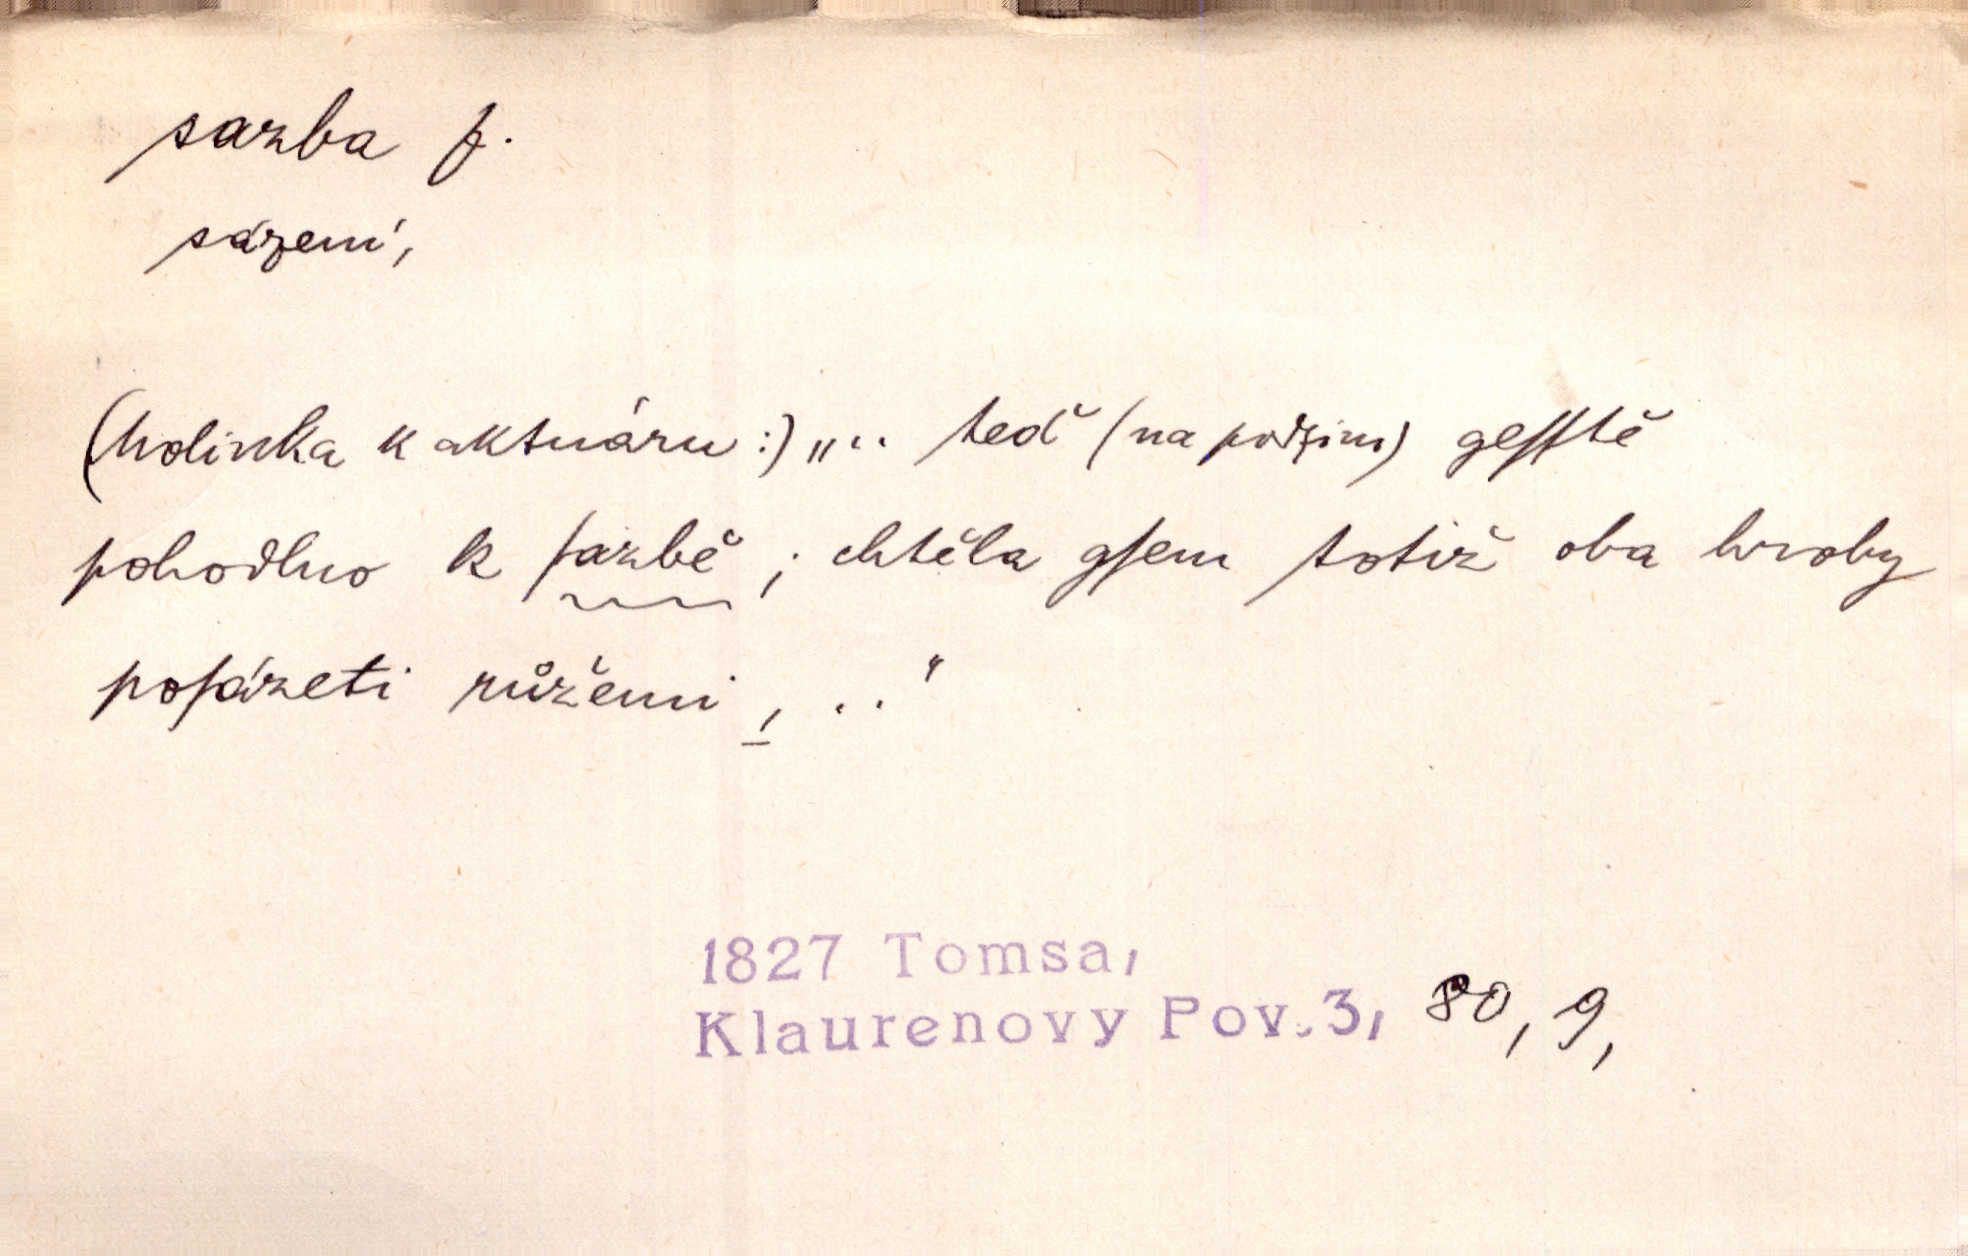 sazba f.
sázení,
(holinka k aktuáru:) „.. teď (na podzim) gesstě
pohodlno k sazbě; chtěla gsem totiž oba hroby
posázeti růžemi, .."
1827 Tomsa,
Klaurenovy Pov.3, 80, 9,